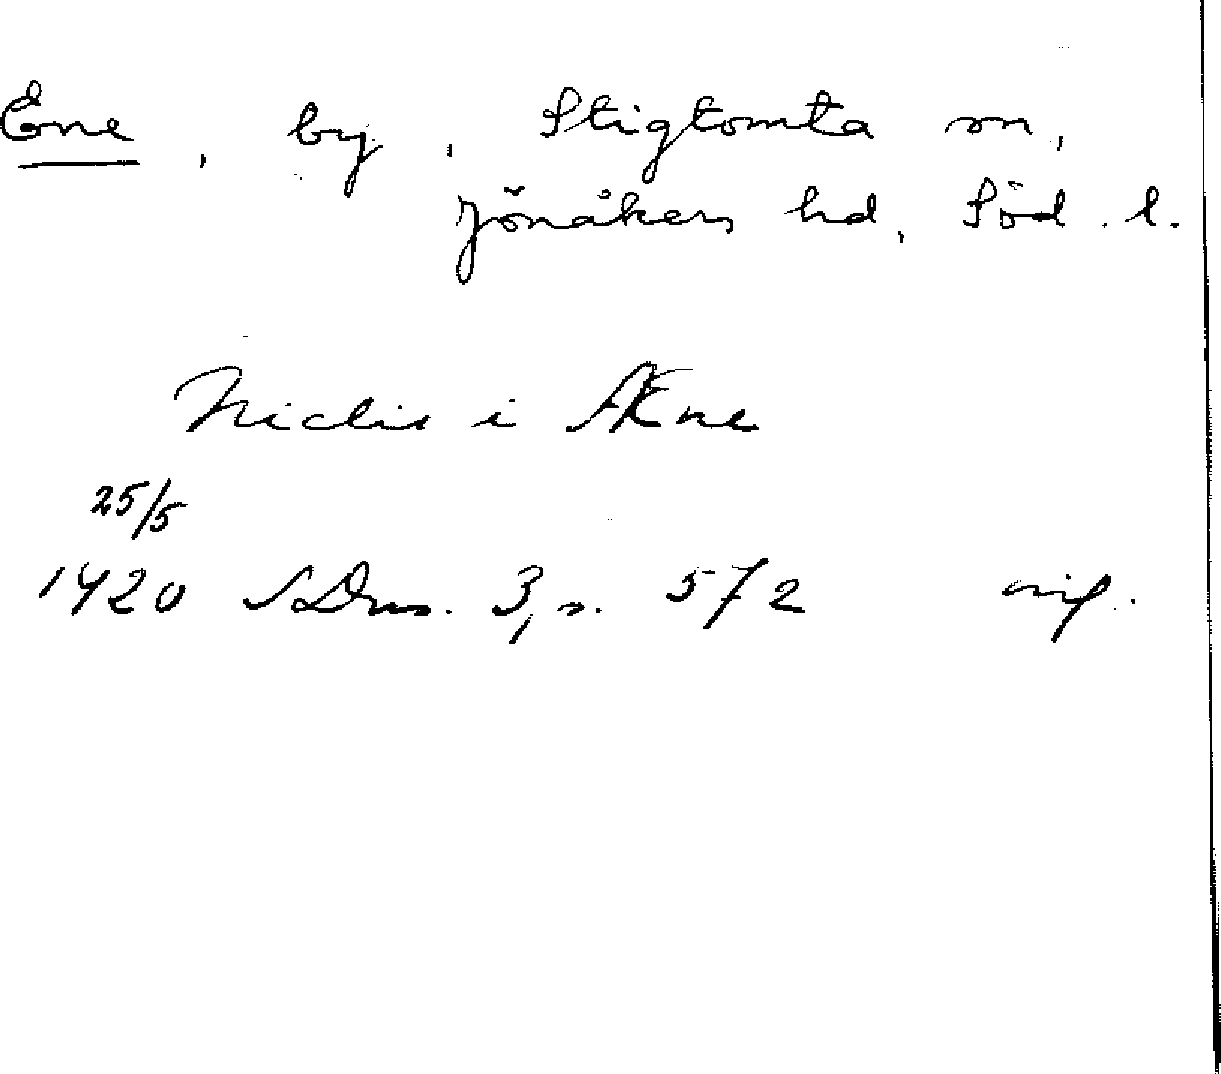 Ene, by, Stigtomta sn,
Jönåkers hd, Söd. l.
Niclis i Æne
25/5
1420 SDns. 3, s. 572